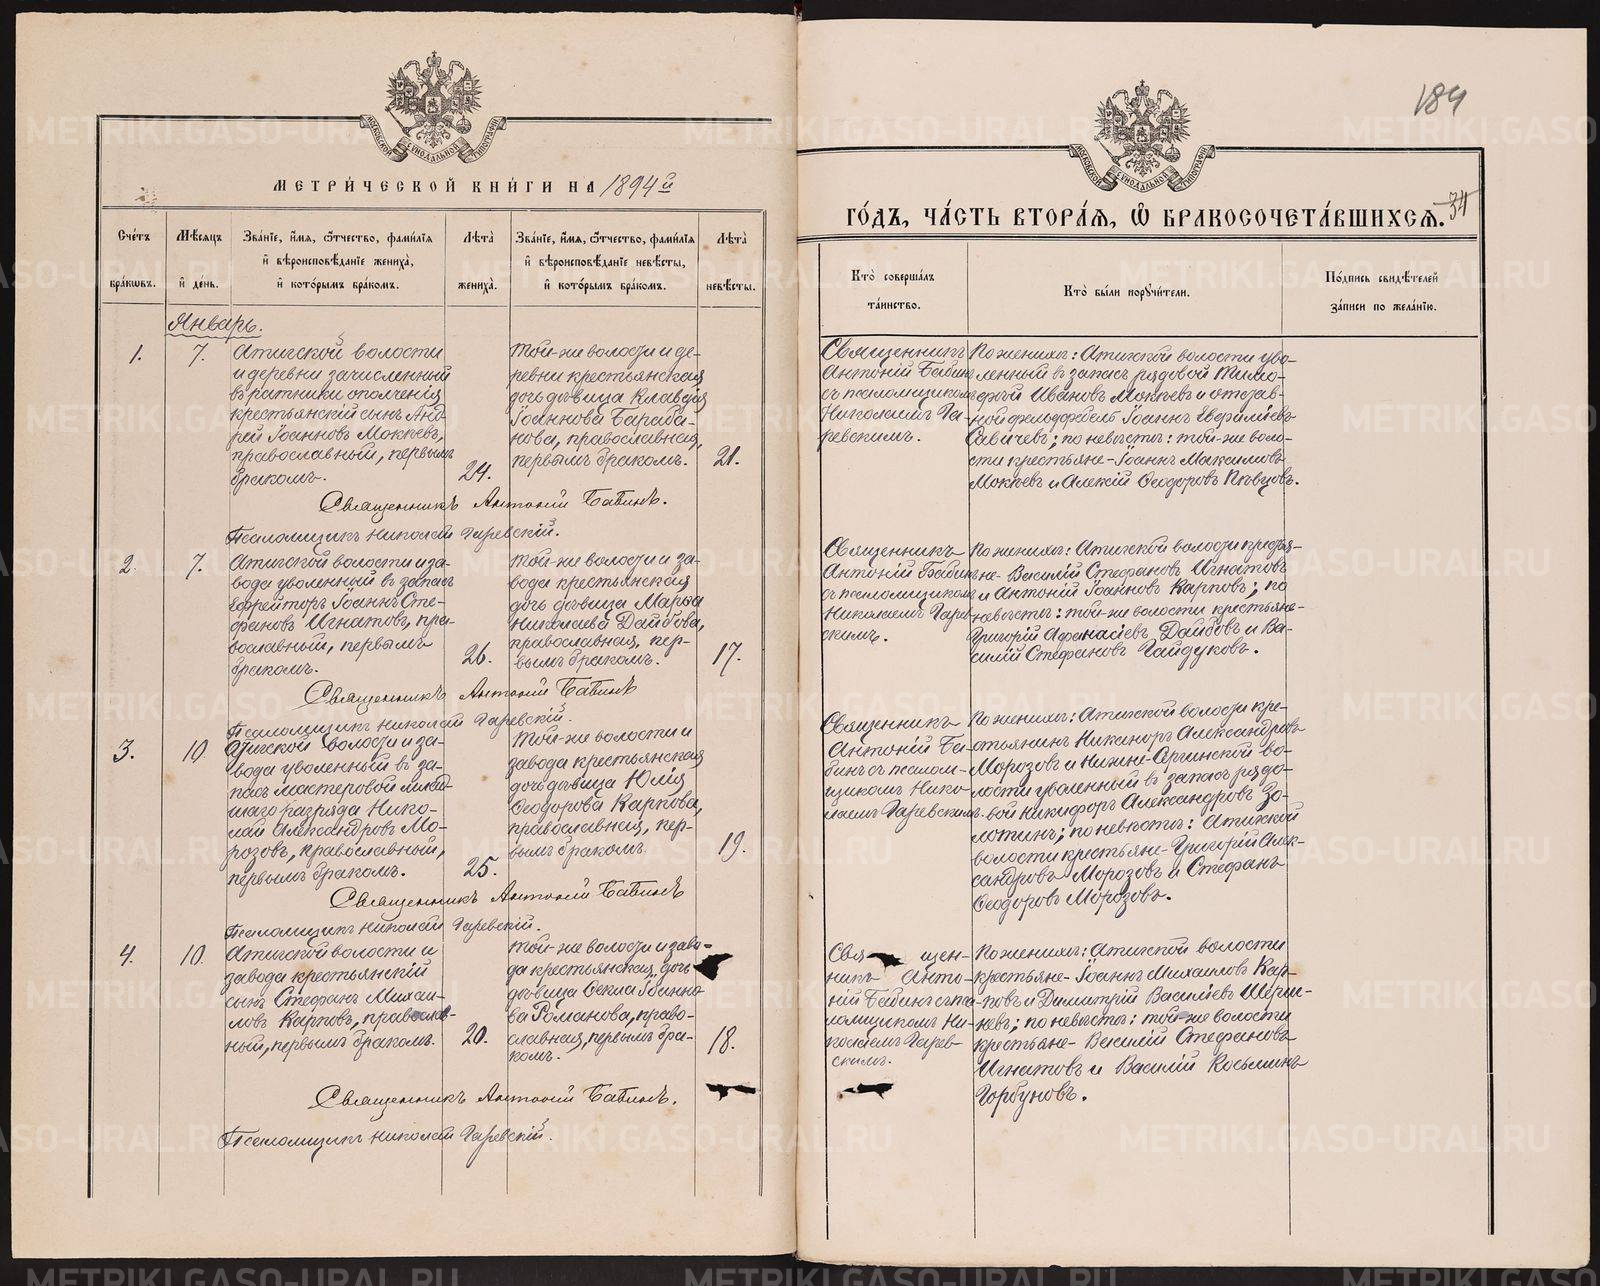 МОСКОВСКОЙ СѴНОДАЛЬНОЙ ТИПОГРАФІИ
МЕТРИ́ЧЕСКОЙ КНИ́ГИ НА 1894 й
Сче́тъ бра́кѡвъ.
Мѣ́сяцъ и҆ де́нь.
Зва́нїе, и҆́мѧ, ѻ҆́тчество, фами́лїѧ и҆ вѣроисповѣ́данїе жениха̀, и҆ кото́рымъ бра́комъ.
Лѣ́та жениха̀.
Зва́нїе, и҆́мѧ, ѻ҆́тчество, фами́лїѧ и҆ вѣроисповѣ́данїе невѣ́сты, и҆ кото́рымъ бра́комъ.
Лѣ́та невѣ́сты.
Январь.
1.
7.
Атигской волости
и деревни зачисленный
въ ратники ополченія
крестьянскій сынъ Анд-
рей Іоанновъ Мокѣевъ,
православный, первымъ
бракомъ.
24.
той-же волости и де-
ревни крестьянская
дочь дѣвица Клавдія
Іоаннова Бараба-
нова, православная,
первымъ бракомъ.
21.
Священникъ Антоній Бабинъ.
Псаломщикъ Николай Гаревскій.
2.
7.
Атигской волости и за-
вода уволенный въ запасъ
Ефрейторъ Іоаннъ Сте-
фановъ Игнатовъ, пра-
вославный, первымъ
бракомъ.
26.
той-же волости и за-
вода крестьянская
дочь дѣвица Марѳа
Николаева Дайбова,
православная, пер-
вымъ бракомъ.
17.
Священникъ Антоній Бабинъ
Псаломщикъ Николай Гаревскій.
3.
10
Атигской волости и за-
вода уволенный въ за-
пасъ мастеровой млад-
шаго разряда Нико-
лай Александровъ Мо-
розовъ, православный,
первымъ бракомъ.
25.
Той-же волости и
завода крестьянская
дочь дѣвица Юлія
Ѳеодорова Карпова,
православная, пер-
вымъ бракомъ
19.
Священникъ Антоній Бабинъ
Псаломщикъ Николай Гаревскій.
4.
10
Атигской волости и
завода крестьянскій
сынъ Стефанъ Михаи-
ловъ Карповъ, православ-
ный, первымъ бракомъ.
20.
той-же волости и заво-
да крестьянская дочь
дѣвица Ѳекла Іоанно-
ва Романова, право-
славная, первымъ бра-
комъ.
18.
Священникъ Антоній Бабинъ.
Псаломщикъ Николай Гаревскій.
184
34
МОСКОВСКОЙ СѴНОДАЛЬНОЙ ТИПОГРАФІИ
ГО́ДЪ, ЧА́СТЬ ВТОРА́Ѧ, Ѽ БРАКОСОЧЕТА́ВШИХСѦ.
Кто̀ соверша́лъ та́инство.
Кто̀ бы́ли порꙋчи́тели.
По́дпись свидѣ́телей за́писи по жела́нїю.
Священникъ
Антоній Бабинъ
съ псаломщикомъ
Николаемъ Га-
ревскимъ.
По женихѣ: Атигской волости уво-
ленный въ запасъ рядовой Тимо-
фей Ивановъ Мокѣевъ и отстав-
ной фельдфебель Іоаннъ
Савичевъ; по невѣстѣ: той-же воло-
сти крестьяне-Іоаннъ Максимовъ
Мокѣевъ и Алексій Ѳеодоровъ Пѣвцовъ.
Священникъ
Антоній Бабинъ
съ псаломщикомъ
Николаемъ Гарев-
скимъ.
По женихѣ: Атигской волости крестья-
не- Василій Стефановъ Игнатовъ
и Антоній Іоанновъ Карповъ; по
невѣстѣ: той-же волости крестьяне-
Григорій Афанасіевъ Дайбовъ и Ва-
силій Стефановъ Гайдуковъ.
Священникъ
Антоній Ба-
бинъ съ псалом-
щикомъ Нико-
лаемъ Гаревскимъ.
По женихѣ: Атигской волости кре-
стьянинъ Никаноръ Александровъ
Морозовъ и Нижне-Сергинской во-
лости уволенный въ запасъ рядо-
вой Никифоръ Александровъ Зо-
лотинъ; по невѣстѣ: Атигской
волости крестьяне-Григорій Алек-
сандровъ Морозовъ и Стефанъ
Ѳеодоровъ Морозовъ.
Священ-
никъ Анто-
ній Бабинъ съ пса-
ломщикомъ Ни-
колаемъ Гарев-
скимъ.
По женихѣ: Атигской волости
крестьяне-Іоаннъ Михаиловъ Кар-
повъ и Димитрій Василіевъ
по невѣстѣ: той-же волости
крестьяне- Василій Стефановъ
Игнатовъ и Василій Косьминъ
Горбуновъ.
METRIKI.GASO-URAL.RU